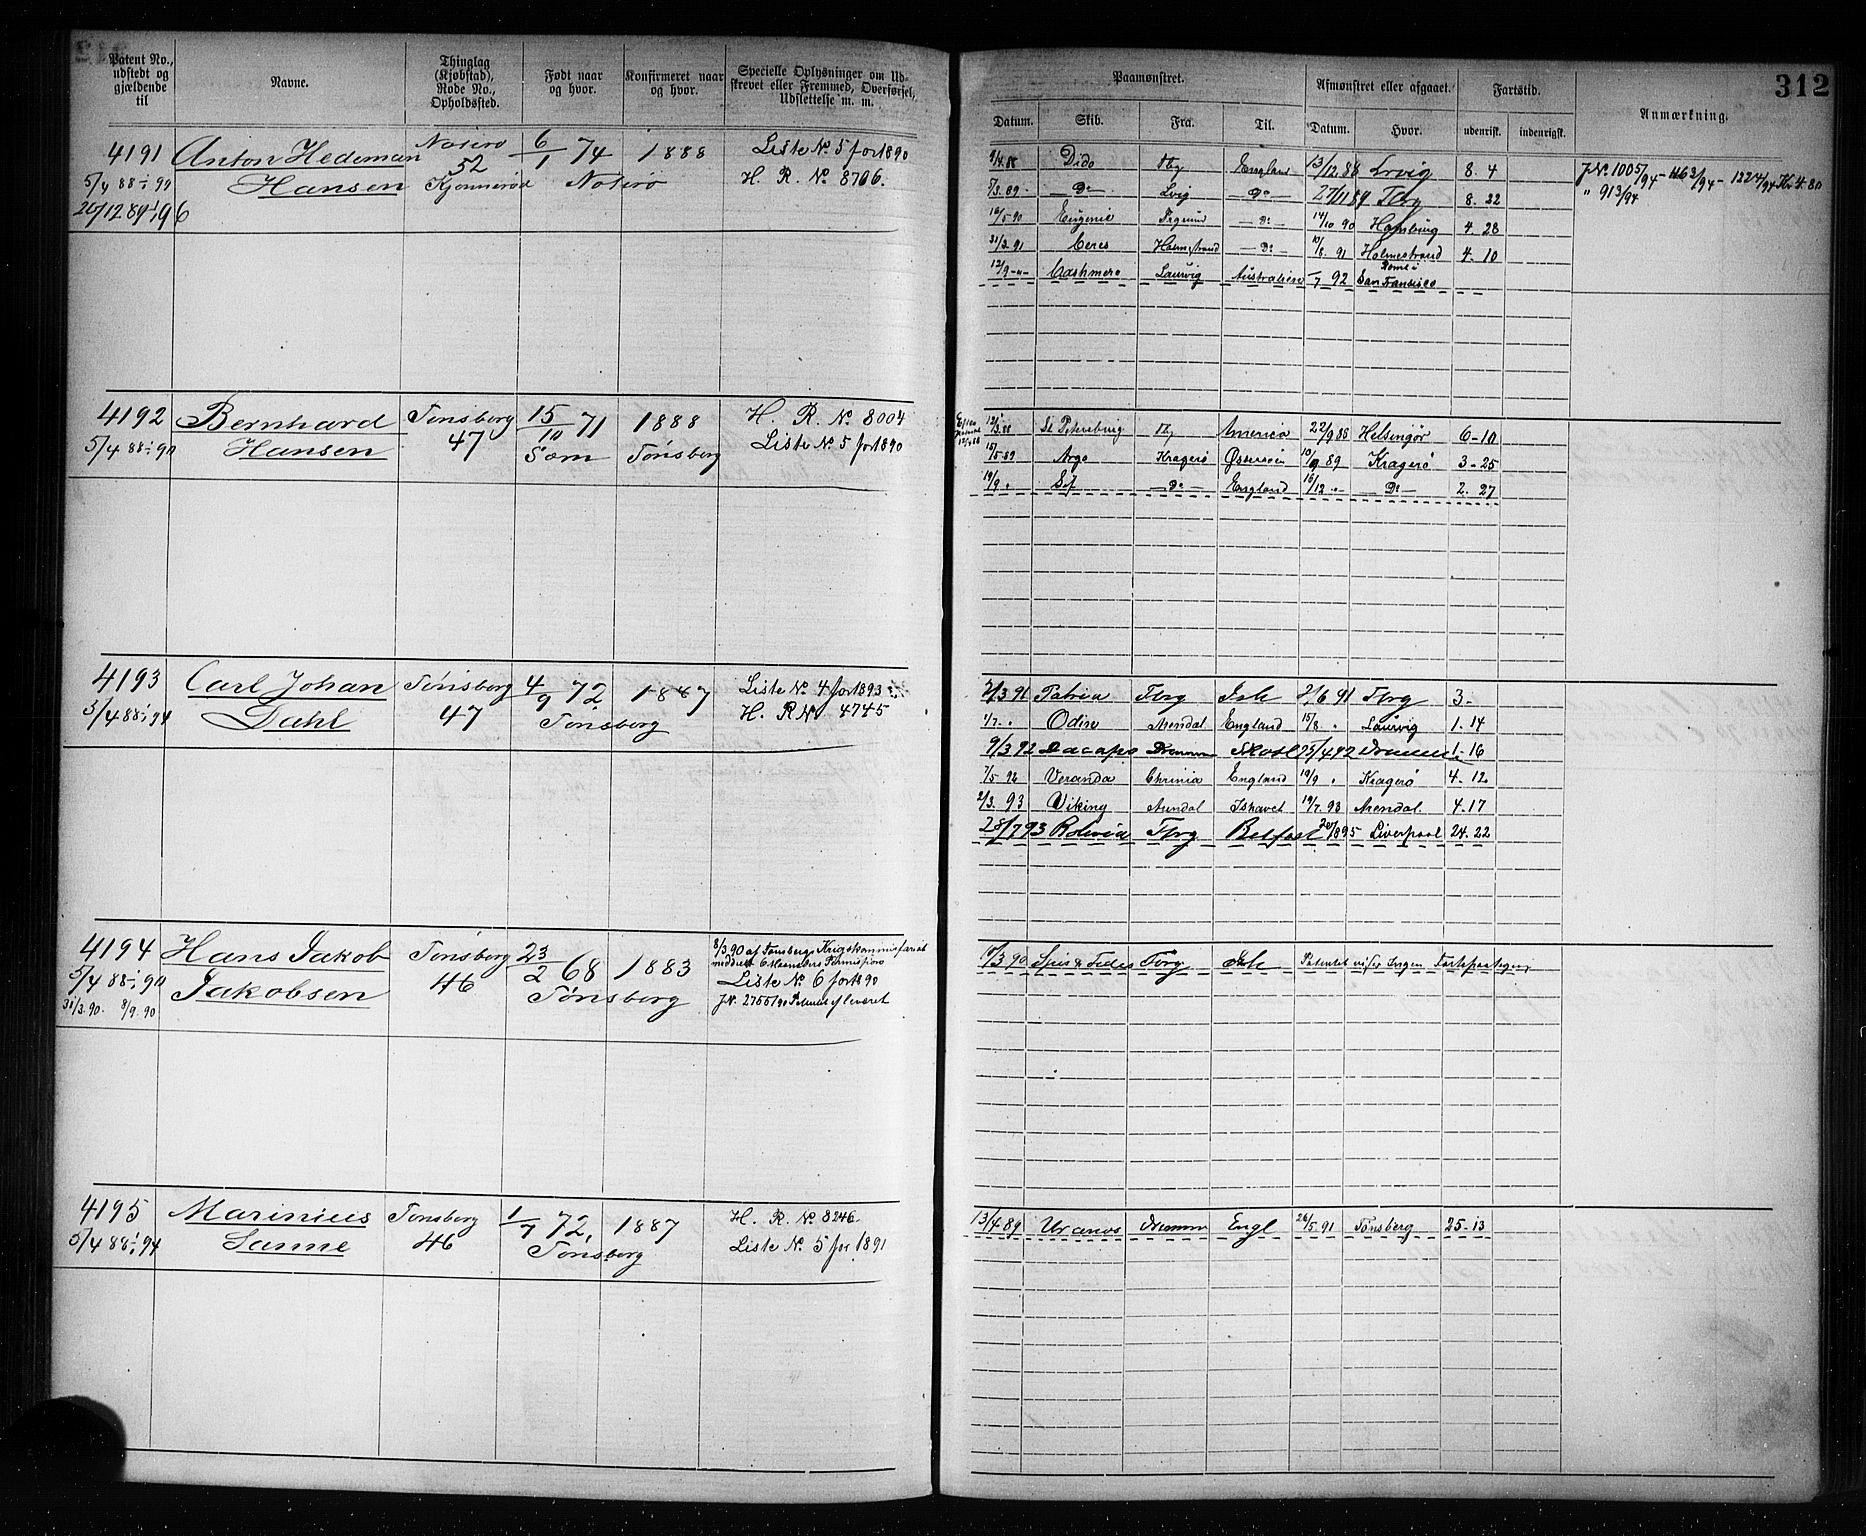 312
Patent No., udstedt og gjældende til
Navne.
Thinglag (Kjøbstad), Rode No., Opholdssted.
Født naar og hvor.
Konfirmeret naar og hvor.
Specielle Oplysninger om Udskrevet eller Fremmed, Overførsel, Udslettelse m. m.
Paamønstret.
Afmønstret eller afgaaet.
Fartstid.
Anmærkning.
Datum. Skib. Fra. Til. Datum. Hvor. udenrigsk. indenrigsk.
4191 Anton Hedeman Nøterø 6/1 74 1888 Liste No. 5 for 1890
5/4 88 Hansen 52 Kjønnerød Nøterø H. R. No. 8706.
Dido Tbg England 13/12.88 Lrvig 8. 4
J.No. 1005/94 - 1163/94 - 1224/94
Do Lvig Do Tbrg 8. 22
" 913/94
16/5 90 Eugenie Do 14/10 90 Hamburg 4. 28
31/3 91 Ceres Holmestrand Do 10/8. 91 Holmestrand 4. 10
12/9 Cashmere Laurvig Australien 7 92 San Fransisco
4192 Bernhard Tønsberg 15/10 71 1888 H. R. No. 8004
5/4 88 - 90 Hansen 47 Sæm Tønsberg Liste No. 5 for 1890
12/3 88 St Petersburg Tbg America 22/9 88 Helsingør 6-10
15/5 89 Argo Kragerø Østersøen 89 Kragerø 3-25
19/9 Do England 16/12 Do 2. 27
4193 Carl Johan Tønsberg 4/9 72 1887 Liste No. 4 for 1893
5/4 88 94 Dahl 47 Tønsberg H. R No. 4745
2/3 91 Patria Tbrg Ish 2/6 91 Tbrg 3-
1/7 Odin Arendal England 15/8 Laurvig 1. 14
9/3 92 Dacapo Dramm 25/4 92 Drammen 1-16
7/5 92 Veranda Chrinia England 19/9 Kragerø 4. 12
2/3. 93 Viking Arendal Ishavet 19/7. 93 Arendal 4. 17
25/7 93 Bolivia Tbrg Belfast Liverpool 24. 22
4194 Hans Jakob Tønsberg 23/2 68 1883 8/3.90 af Tønsbergs Krigskommissariat
5/4 88 - 90 Jakobsen 46 Tønsberg Liste No. 6 for 1890
31/3.90. 8/9. 90
J.No. 2755/90 Patentet afleveret
90 Tbrg Ish Patentet viser ingen
4195 Marinius Tønsberg 1/7 72, 1887 H. R. No. 8246.
5/4 88 94 Sanne 46 Tønsberg Liste No. 5 for 1891
13/4 89 Uranos Dramm Engl 26/5. 91 Tønsberg 25-13